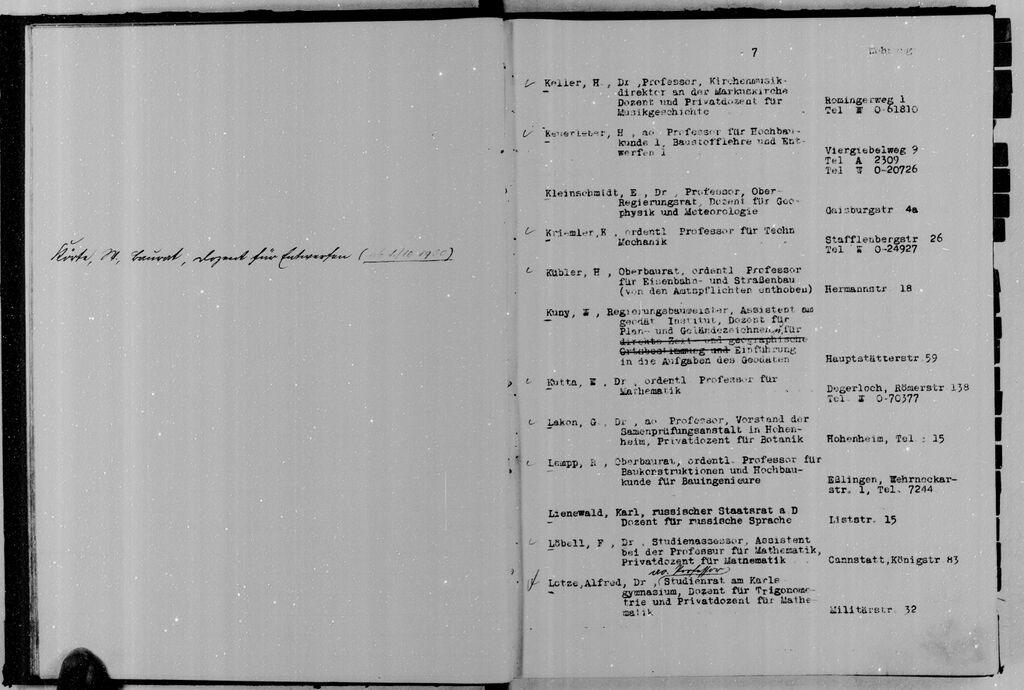 Körte, W., Baurat, Dozent für Entwerfen (ab 1/10. 1930)
7
Keller, H., Dr., Professor, Kirchenmusik-
direktor an der Markuskirche
Dozent und Privatdozent für
Musikgeschichte
Romingerweg 1
Tel W 0-61810
Keuerleber, H., ao Professor für Hochbau-
kunde 1, Baustofflehre und Ent-
werfen 1
Viergiebelweg 9
Tel A 2309
Tel W 0-20726
Kleinschmidt, E., Dr., Professor, Ober-
Regierungsrat, Dozent für Geo-
physik und Meteorologie
Gaisburgstr 4a
Kriemler, K., ordentl Professor für Techn
Mechanik
Stafflenbergstr 26
Tel W 0-24927
Kübler, H., Oberbaurat, ordentl Professor
für Eisenbahn- und Straßenbau
(von den Amtspflichten enthoben)
Hermannstr 18
Kuny, W., Regierungsbaumeister, Assistent am
geodät Institut, Dozent für
Plan- und Geländezeichnen u. für
direkte Zeit- und geographische
Ortsbestimmung und Einführung
in die Aufgaben des Geodäten
Hauptstätterstr 59
Kutta, W., Dr., ordentl Professor für
Mathematik
Degerloch, Römerstr 138
Tel. W 0-70377
Lakon, G., Dr., ao Professor, Vorstand der
Samenprüfungsanstalt in Hohen-
heim, Privatdozent für Botanik
Hohenheim, Tel. 15
Lempp, R., Oberbaurat, ordentl. Professor für
Baukonstruktionen und Hochbau-
kunde für Bauingenieure
Eßlingen, Wehrneckar-
str. 1, Tel. 7244
Lienewald, Karl, russischer Staatsrat a D
Dozent für russische Sprache
Liststr. 15
Löbell, F., Dr., Studienassessor, Assistent
bei der Professur für Mathematik,
Privatdozent für Mathematik
Cannstatt, Königstr 83
ao. Professor
Lotze, Alfred, Dr., Studienrat am Karls
gymnasium, Dozent für Trigonome-
trie und Privatdozent für Mathe-
matik
Militärstr. 32